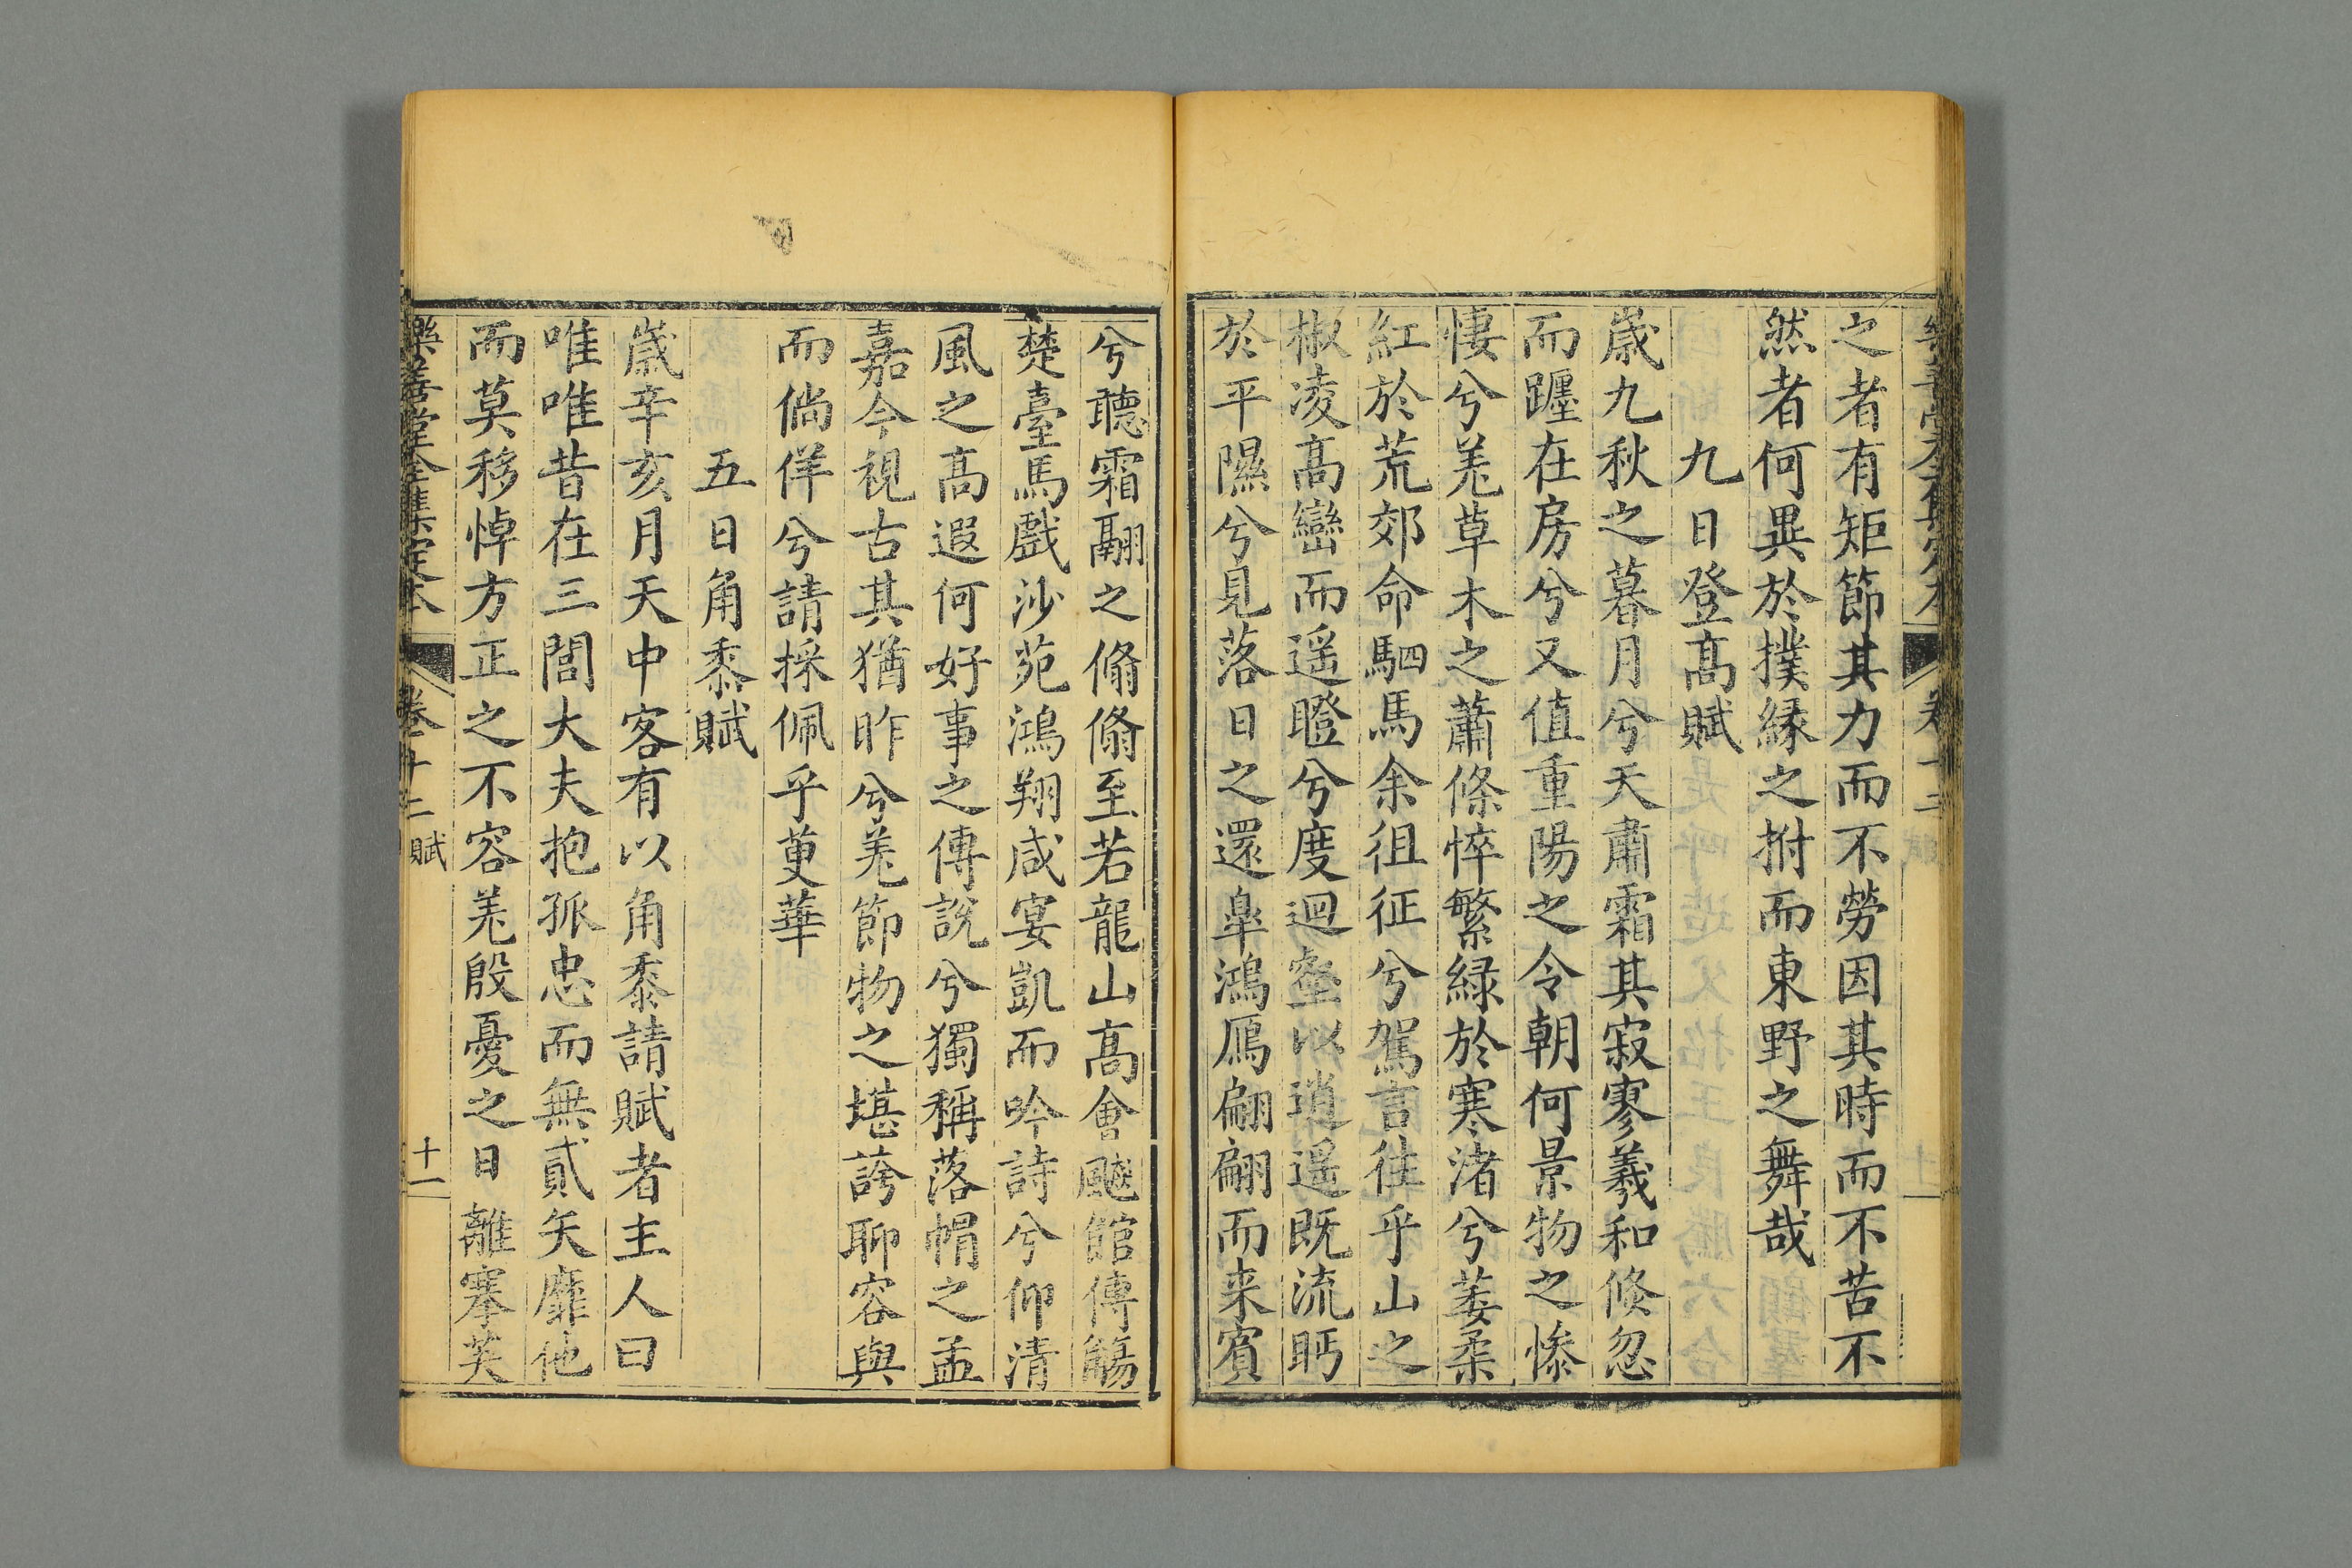 之者有矩節其力而不勞因其時而不苦不
然者何異於撲緣之拊而東野之舞哉
九日登髙賦
歲九秋之暮月兮天肅霜其寂寥羲和倐忽
而躔在房兮又值重陽之令朝何景物之慘
悽兮羌草木之蕭條悴繁緑於寒渚兮萎柔
紅於荒郊命駟馬余徂征兮駕言往乎山之
椒凌髙巒而遥瞪兮度迴壑以逍遥既流眄
於平隰兮見落日之還皐鴻鴈翩翩而来賓
兮聽霜翮之翛翛至若龍山髙會飈館傳觴
楚臺馬戲沙苑鴻翔咸宴凱而吟詩兮仰清
風之髙遐何好事之傳說兮獨稱落帽之孟
嘉今視古其猶昨兮羌節物之堪誇聊容與
而倘佯兮請採佩乎萸華
五日角黍賦
歲辛亥月天中客有以角黍請賦者主人曰
唯唯昔在三閭大夫抱孤忠而無貳矢靡他
而莫移悼方正之不容羌殷憂之日離搴芙
樂善堂全集定本 卷十二 賦 十一